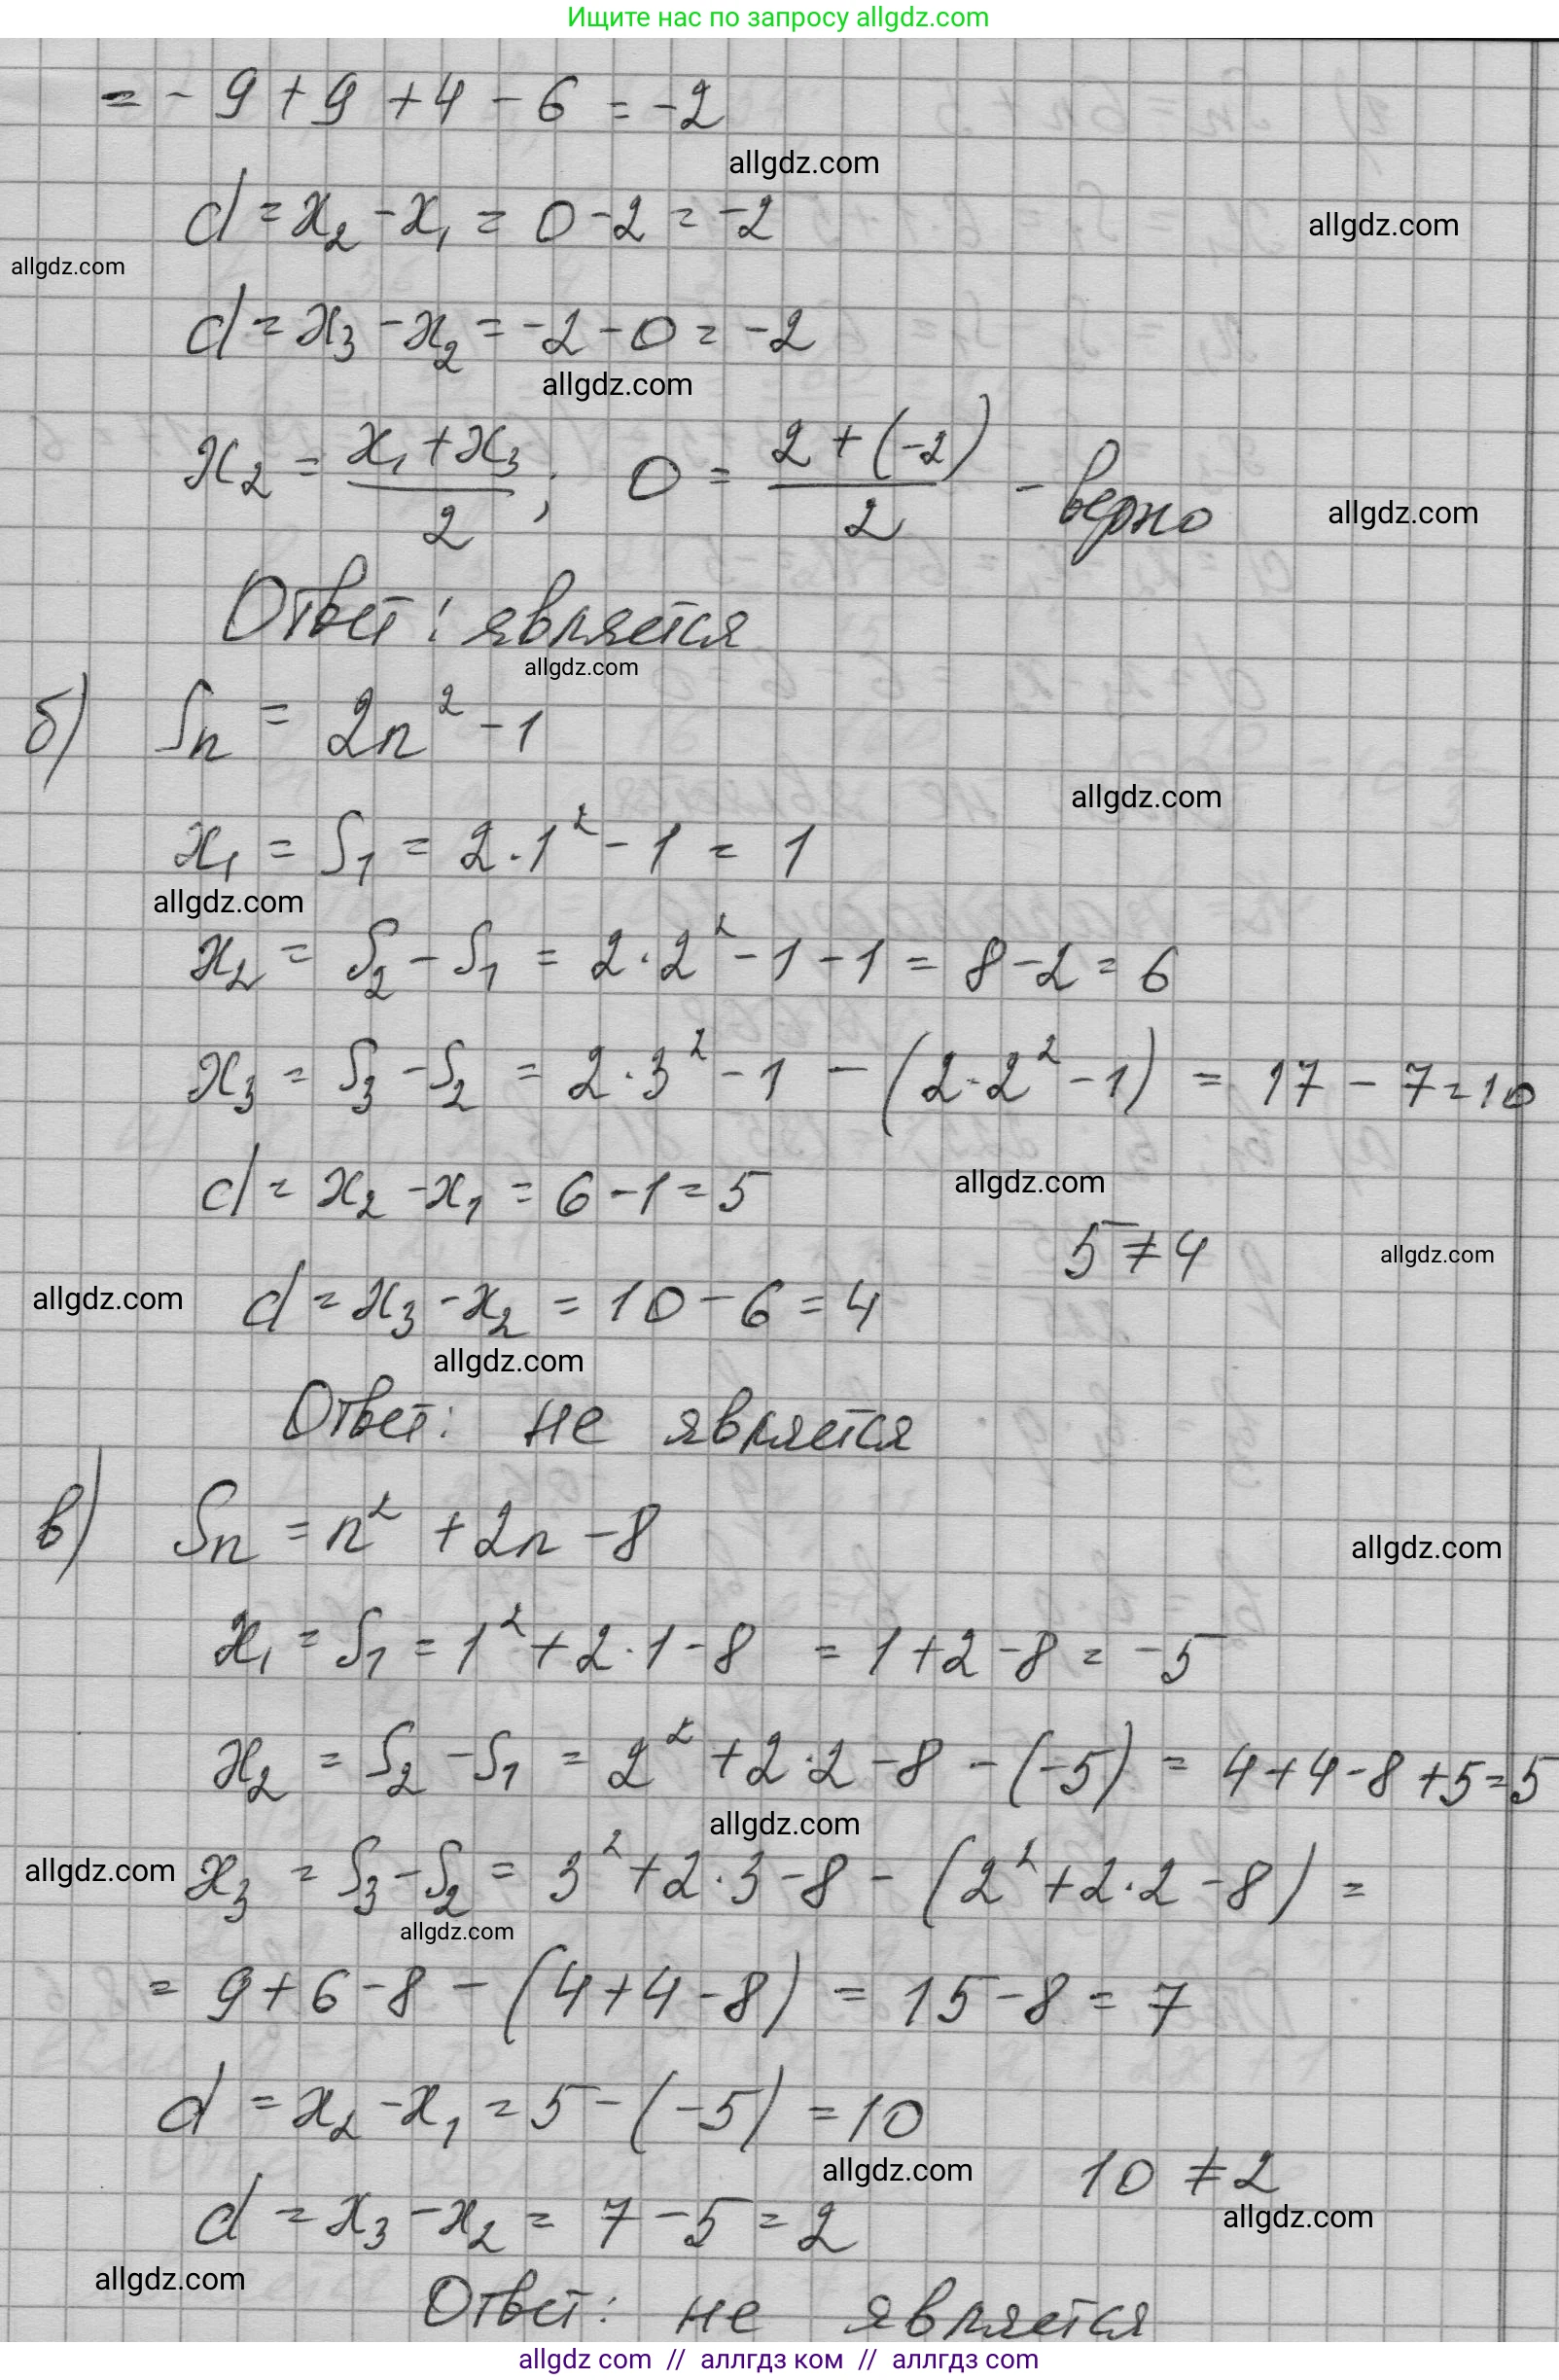 Ищите нас по запросу allgdz.com
= - 9 + 9 + 4 - 6 = -2
allgdz.com
d = x₂ - x₁ = 0 - 2 = -2
allgdz.com
allgdz.com
d = x₃ - x₂ = -2 - 0 = -2
allgdz.com
x₂ = (x₁ + x₃)/2; 0 = (2 + (-2))/2 - верно
allgdz.com
Ответ: является
allgdz.com
б) Sn = 2n² - 1
allgdz.com
x₁ = S₁ = 2·1² - 1 = 1
allgdz.com
x₂ = S₂ - S₁ = 2·2² - 1 - 1 = 8 - 2 = 6
x₃ = S₃ - S₂ = 2·3² - 1 - (2·2² - 1) = 17 - 7 = 10
d = x₂ - x₁ = 6 - 1 = 5
allgdz.com
5 ≠ 4
allgdz.com
allgdz.com
d = x₃ - x₂ = 10 - 6 = 4
allgdz.com
Ответ: не является
в) Sn = n² + 2n - 8
allgdz.com
x₁ = S₁ = 1² + 2·1 - 8 = 1 + 2 - 8 = -5
x₂ = S₂ - S₁ = 2² + 2·2 - 8 - (-5) = 4 + 4 - 8 + 5 = 5
allgdz.com
allgdz.com
x₃ = S₃ - S₂ = 3² + 2·3 - 8 - (2² + 2·2 - 8) =
allgdz.com
= 9 + 6 - 8 - (4 + 4 - 8) = 15 - 8 = 7
d = x₂ - x₁ = 5 - (-5) = 10
allgdz.com
10 ≠ 2
allgdz.com
d = x₃ - x₂ = 7 - 5 = 2
allgdz.com
Ответ: не является
allgdz com // аллгдз ком // аллгдз com